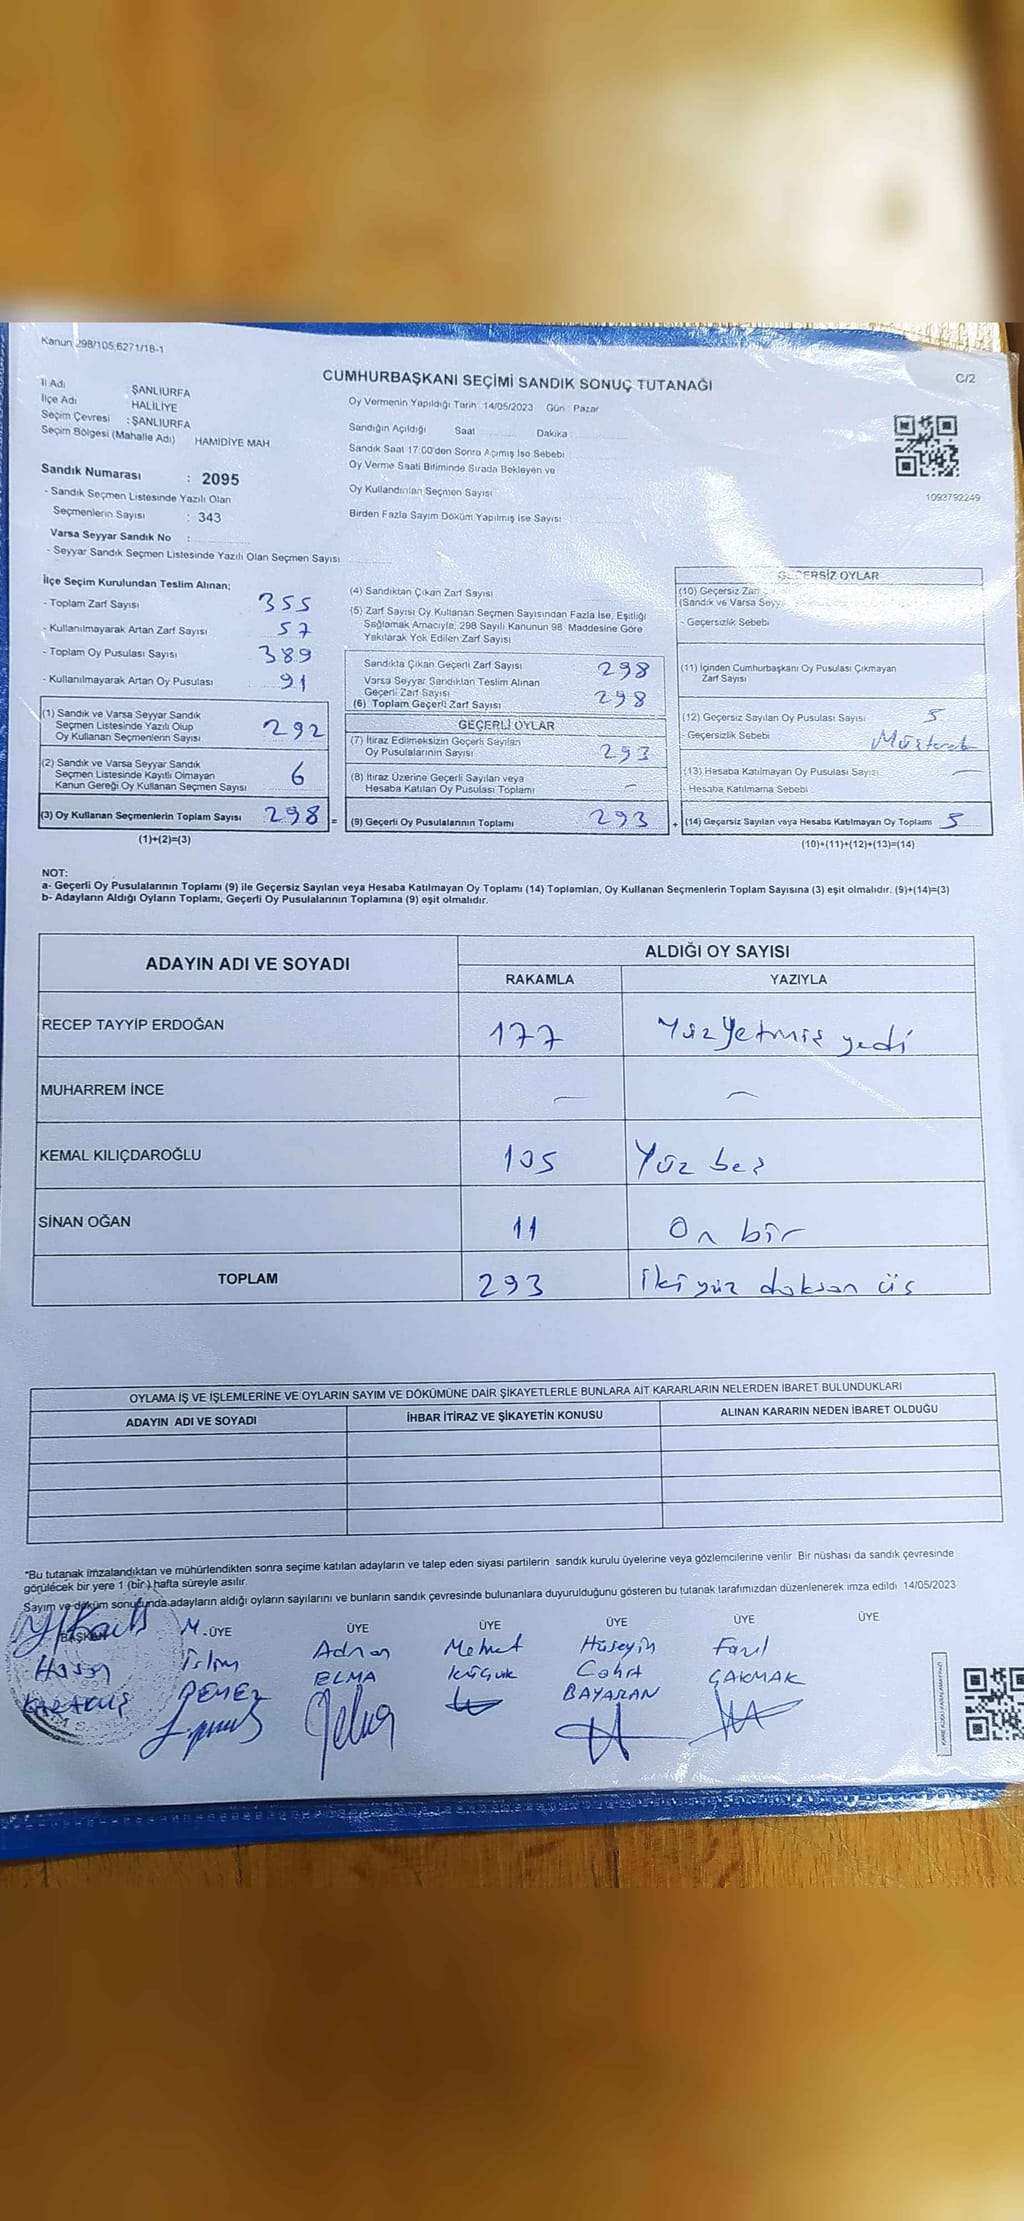 Kanun 298/105,6271/1B-1
CUMHURBAŞKANI SEÇİMİ SANDIK SONUÇ TUTANAĞI
C/2
İl Adı ŞANLIURFA
İlçe Adı HALİLİYE
Seçim Çevresi : ŞANLIURFA
Seçim Bölgesi (Mahalle Adı) HAMİDİYE MAH
Sandık Numarası : 2095
- Sandık Seçmen Listesinde Yazılı Olan
Seçmenlerin Sayısı : 343
Varsa Seyyar Sandık No :
- Seyyar Sandık Seçmen Listesinde Yazılı Olan Seçmen Sayısı
Oy Vermenin Yapıldığı Tarih : 14/05/2023 Gün : Pazar
Sandığın Açıldığı Saat Dakika
Sandık Saat 17:00'den Sonra Açımış İse Sebebi
Oy Verme Saati Bitiminde Sırada Bekleyen ve
Oy Kullandırılan Seçmen Sayısı
Birden Fazla Sayım Döküm Yapılmış ise Sayısı
1093792249
İlçe Seçim Kurulundan Teslim Alınan;
- Toplam Zarf Sayısı 355
- Kullanılmayarak Artan Zarf Sayısı 57
- Toplam Oy Pusulası Sayısı 389
- Kullanılmayarak Artan Oy Pusulası 91
(1) Sandık ve Varsa Seyyar Sandık
Seçmen Listesinde Yazılı Olup
Oy Kullanan Seçmenlerin Sayısı 292
(2) Sandık ve Varsa Seyyar Sandık
Seçmen Listesinde Kayıtlı Olmayan
Kanun Gereği Oy Kullanan Seçmen Sayısı 6
(3) Oy Kullanan Seçmenlerin Toplam Sayısı 298 =
(1)+(2)=(3)
(4) Sandıktan Çıkan Zarf Sayısı
(5) Zarf Sayısı Oy Kullanan Seçmen Sayısından Fazla İse, Eşitliği
Sağlamak Amacıyla; 298 Sayılı Kanunun 98. Maddesine Göre
Yakılarak Yok Edilen Zarf Sayısı
Sandıkta Çıkan Geçerli Zarf Sayısı 298
Varsa Seyyar Sandıktan Teslim Alınan
Geçerli Zarf Sayısı
(6) Toplam Geçerli Zarf Sayısı 298
GEÇERLİ OYLAR
(7) İtiraz Edilmeksizin Geçerli Sayılan
Oy Pusulalarının Sayısı 293
(8) İtiraz Üzerine Geçerli Sayılan veya
Hesaba Katılan Oy Pusulası Toplamı -
(9) Geçerli Oy Pusulalarının Toplamı 293 +
GEÇERSİZ OYLAR
(10) Geçersiz Zarf
(Sandık ve Varsa
- Geçersizlik Sebebi
(11) İçinden Cumhurbaşkanı Oy Pusulası Çıkmayan
Zarf Sayısı
(12) Geçersiz Sayılan Oy Pusulası Sayısı 5
Geçersizlik Sebebi
(13) Hesaba Katılmayan Oy Pusulası Sayısı -
- Hesaba Katılmama Sebebi
(14) Geçersiz Sayılan veya Hesaba Katılmayan Oy Toplamı 5
(10)+(11)+(12)+(13)=(14)
NOT:
a- Geçerli Oy Pusulalarının Toplamı (9) ile Geçersiz Sayılan veya Hesaba Katılmayan Oy Toplamı (14) Toplamları, Oy Kullanan Seçmenlerin Toplam Sayısına (3) eşit olmalıdır. (9)+(14)=(3)
b- Adayların Aldığı Oyların Toplamı, Geçerli Oy Pusulalarının Toplamına (9) eşit olmalıdır.
ADAYIN ADI VE SOYADI ALDIĞI OY SAYISI
RAKAMLA YAZIYLA
RECEP TAYYİP ERDOĞAN 177 Yüz Yetmiş yedi
MUHARREM İNCE - -
KEMAL KILIÇDAROĞLU 105 Yüz beş
SİNAN OĞAN 11 On bir
TOPLAM 293 İki yüz doksan üç
OYLAMA İŞ VE İŞLEMLERİNE VE OYLARIN SAYIM VE DÖKÜMÜNE DAİR ŞİKAYETLERLE BUNLARA AİT KARARLARIN NELERDEN İBARET BULUNDUKLARI
ADAYIN ADI VE SOYADI İHBAR İTİRAZ VE ŞİKAYETİN KONUSU ALINAN KARARIN NEDEN İBARET OLDUĞU
*Bu tutanak imzalandıktan ve mühürlendikten sonra seçime katılan adayların ve talep eden siyasi partilerin sandık kurulu üyelerine veya gözlemcilerine verilir. Bir nüshası da sandık çevresinde
görülecek bir yere 1 (bir) hafta süreyle asılır.
Sayım ve döküm sonucunda adayların aldığı oyların sayılarını ve bunların sandık çevresinde bulunanlara duyurulduğunu gösteren bu tutanak tarafımızdan düzenlenerek imza edildi. 14/05/2023
BAŞKAN M. ÜYE ÜYE ÜYE ÜYE ÜYE ÜYE
Hasan İslim Adnan Mehmet Hüseyin
ELMA Küçük
BAYARAN ÇAKMAK